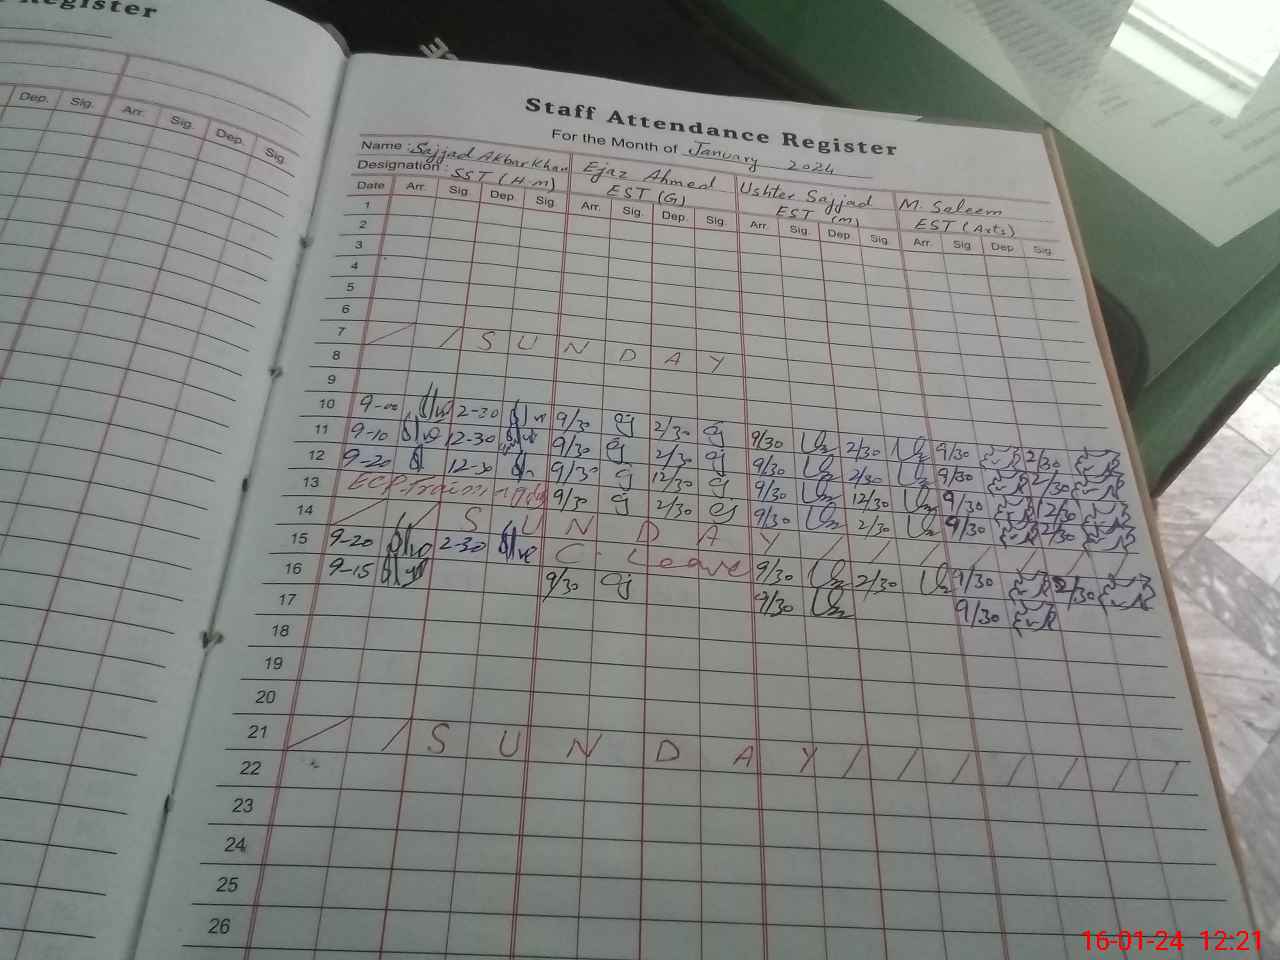 Register
Dep. Sig. Arr. Sig. Dep. Sig.
Staff Attendance Register
For the Month of January 2024
Name : Sajjad Akbar Khan Ejaz Ahmed Ushter Sajjad M. Saleem
Designation : SST (H.m) EST (G) EST (m) EST (Arts)
Date Arr. Sig. Dep. Sig. Arr. Sig. Dep. Sig. Arr. Sig. Dep. Sig. Arr. Sig. Dep. Sig.
1
2
3
4
5
6
7 SUNDAY
8
9
10 9-00 2-30 9/30 2/30 9/30 2/30 9/30 2/30
11 9-10 12-30 9/30 2/30 9/30 2/30 9/30 2/30
12 9-20 12-30 9/30 12/30 9/30 12/30 9/30 2/30
13 9/30 2/30 9/30 2/30 9/30 2/30
14 SUNDAY
15 9-20 2-30 C. Leave 9/30 2/30 9/30 2/30
16 9-15 9/30 9/30 9/30
17
18
19
20
21 SUNDAY
22
23
24
25
26
16-01-24 12:21